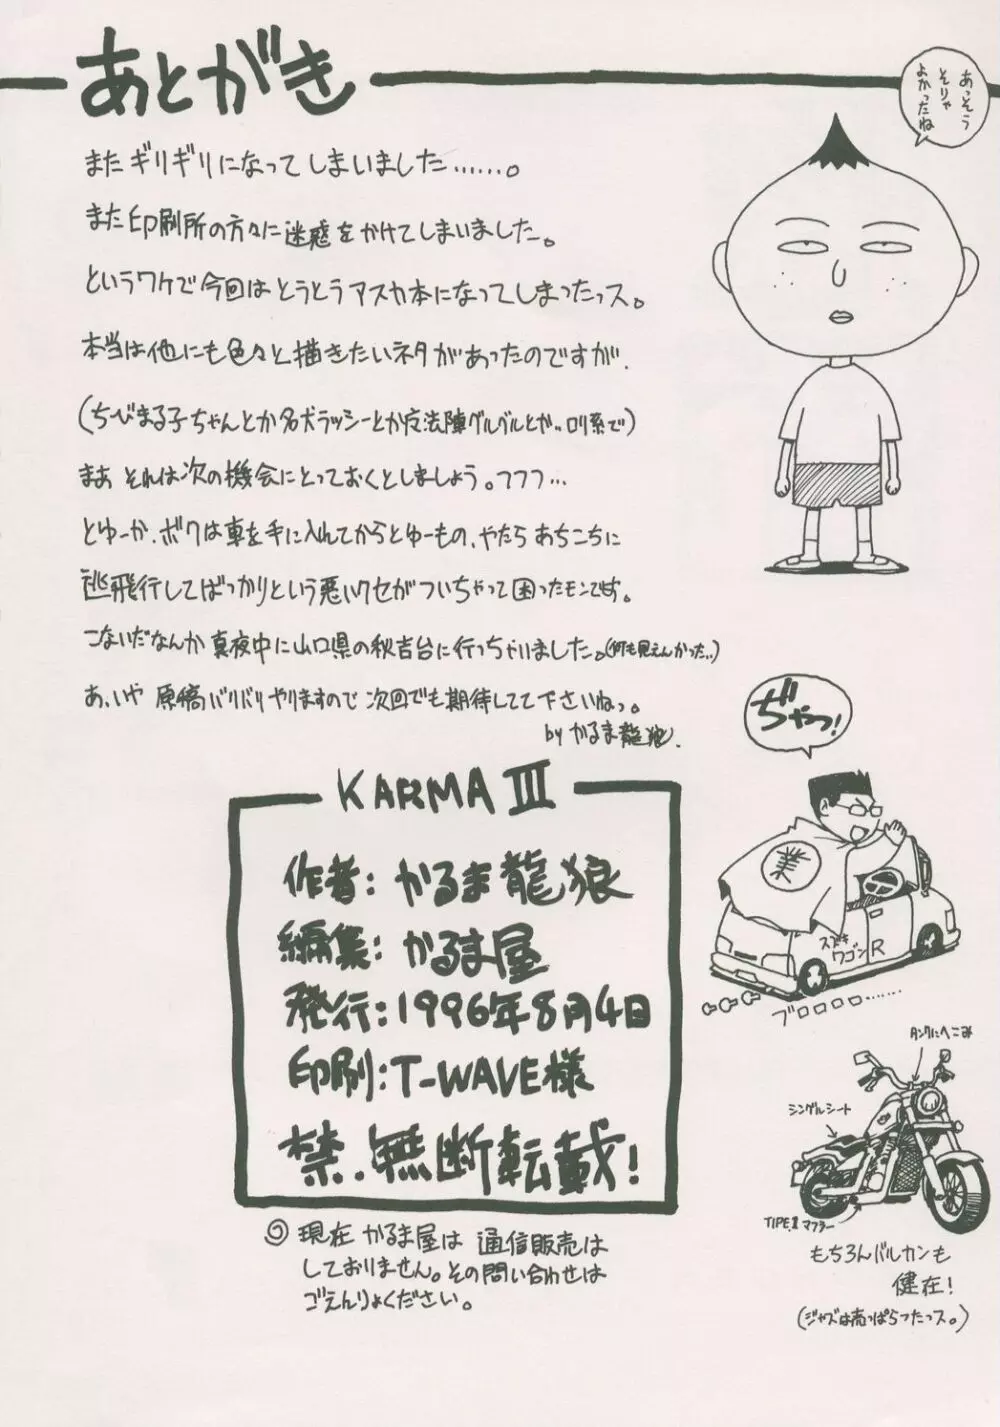 あとがき
あっそう
そりゃ
よかったね
またギリギリになってしまいました……。
また印刷所の方々に迷惑をかけてしまいました。
というワケで今回はとうとうアスカ本になってしまったっス。
本当は他にも色々と描きたいネタがあったのですが、
(ちびまる子ちゃんとか名犬ラッシーとか魔法陣グルグルとか…ロリ系で)
まあ それは次の機会にとっておくとしましょう。フフフ…
とゆーか、ボクは車を手に入れてからとゆーもの、やたらあちこちに
逃飛行してばっかりという悪いクセがついちゃって困ったモンです。
こないだなんか真夜中に山口県の秋吉台に行っちゃいました。(何も見えんかった…)
あ、いや 原稿バリバリやりますので次回でも期待してて下さいねっ。
by かるま龍狼.
ぢゃっ!
業
スズキ
ワゴンR
ブロロロロ……
KARMA III
作者:かるま龍狼
編集:かるま屋
発行:1996年8月4日
印刷:T-WAVE様
禁.無断転載!
◎現在 かるま屋は 通信販売は
しておりません。その問い合わせは
ごえんりょください。
タンクにへこみ
シングルシート
TIPE.II マフラー
もちろんバルカンも
健在!
(ジャズは売っぱらったっス。)